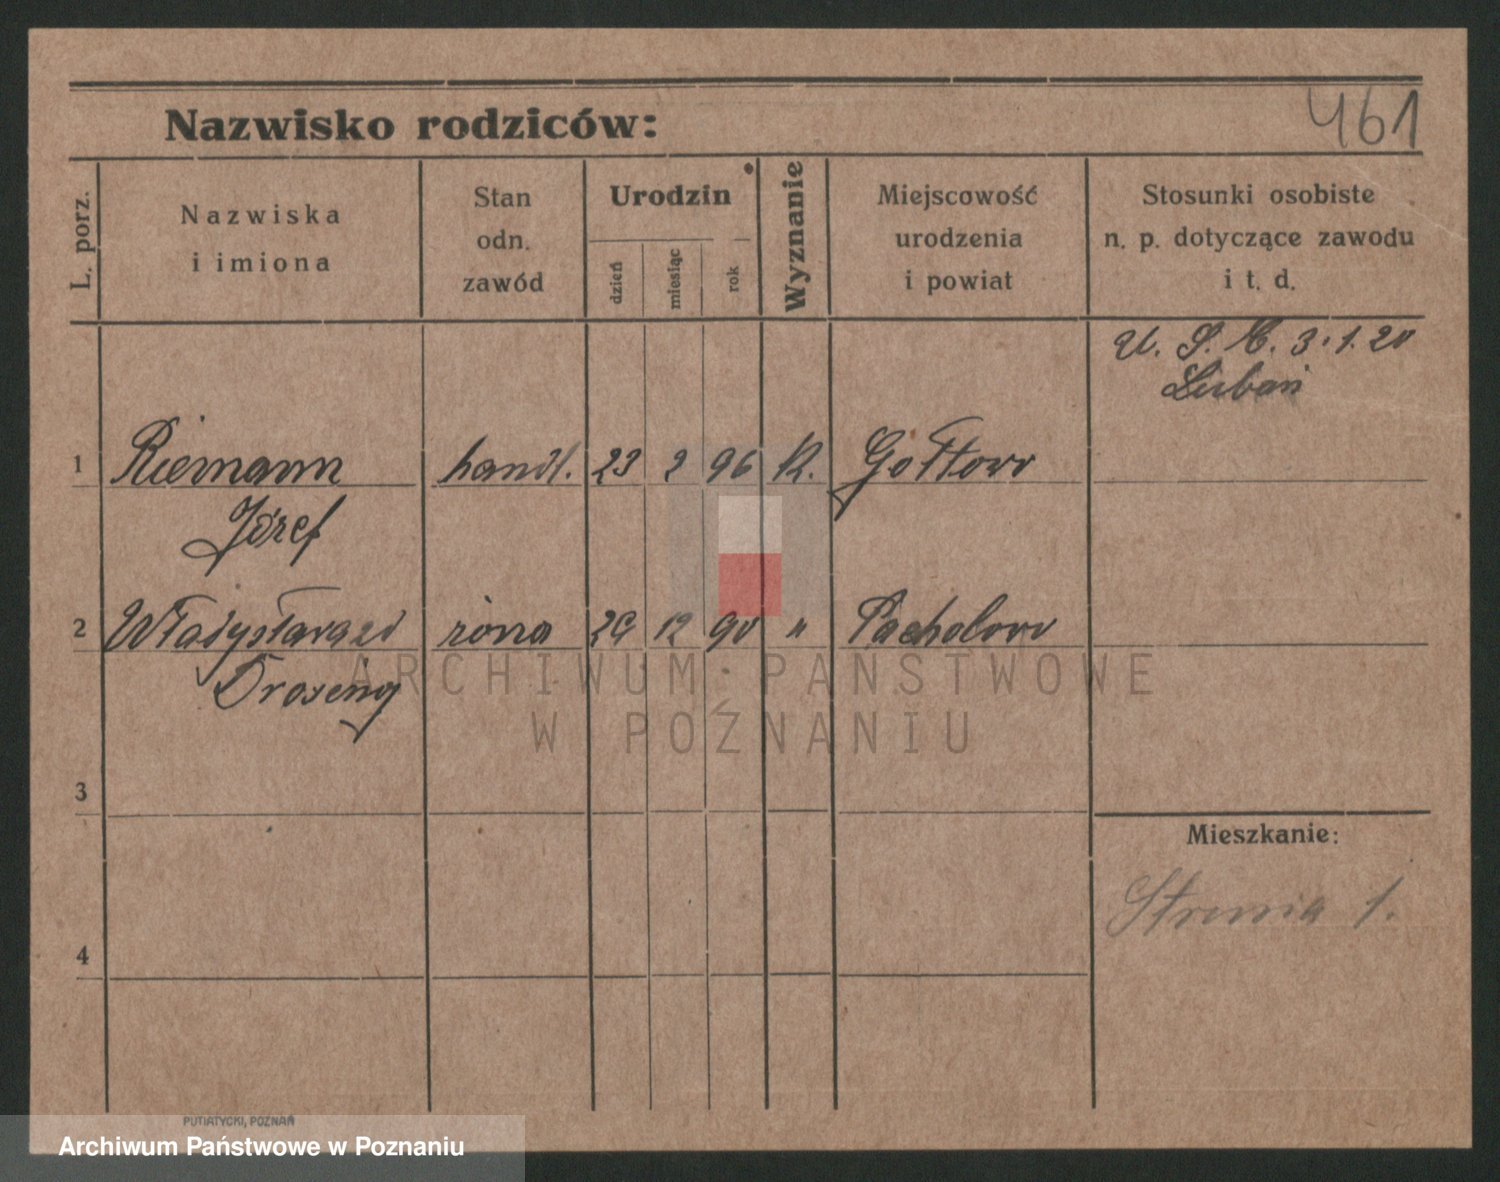 461
Nazwisko rodziców:
L. porz.
Nazwiska
i imiona
Stan
odn.
zawód
Urodzin
dzień
miesiąc
rok
Wyznanie
Miejscowość
urodzenia
i powiat
Stosunki osobiste
n. p. dotyczące zawodu
i t. d.
U. S. C. 3.1.20
Luboń
1 Riemann handl. 23 2 96 K. Gołtow
Józef
2 żona 12 90 " Pacholowo
3
Mieszkanie:
1.
4
ARCHIWUM PAŃSTWOWE
W POZNANIU
PUTIATYCKI, POZNAŃ
Archiwum Państwowe w Poznaniu